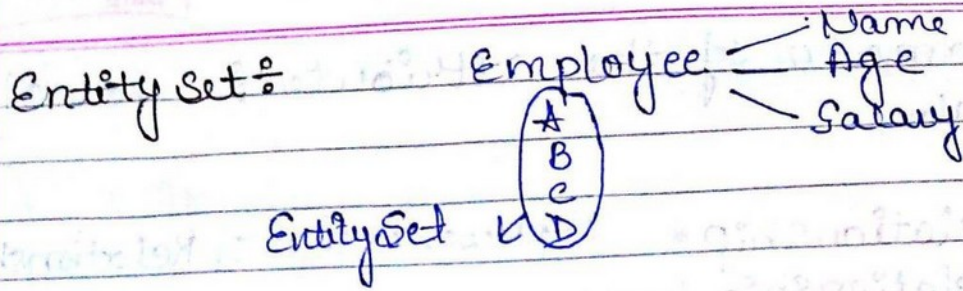 Entity Set÷ Employee Name
Age
Salary
A
B
C
Entity Set D